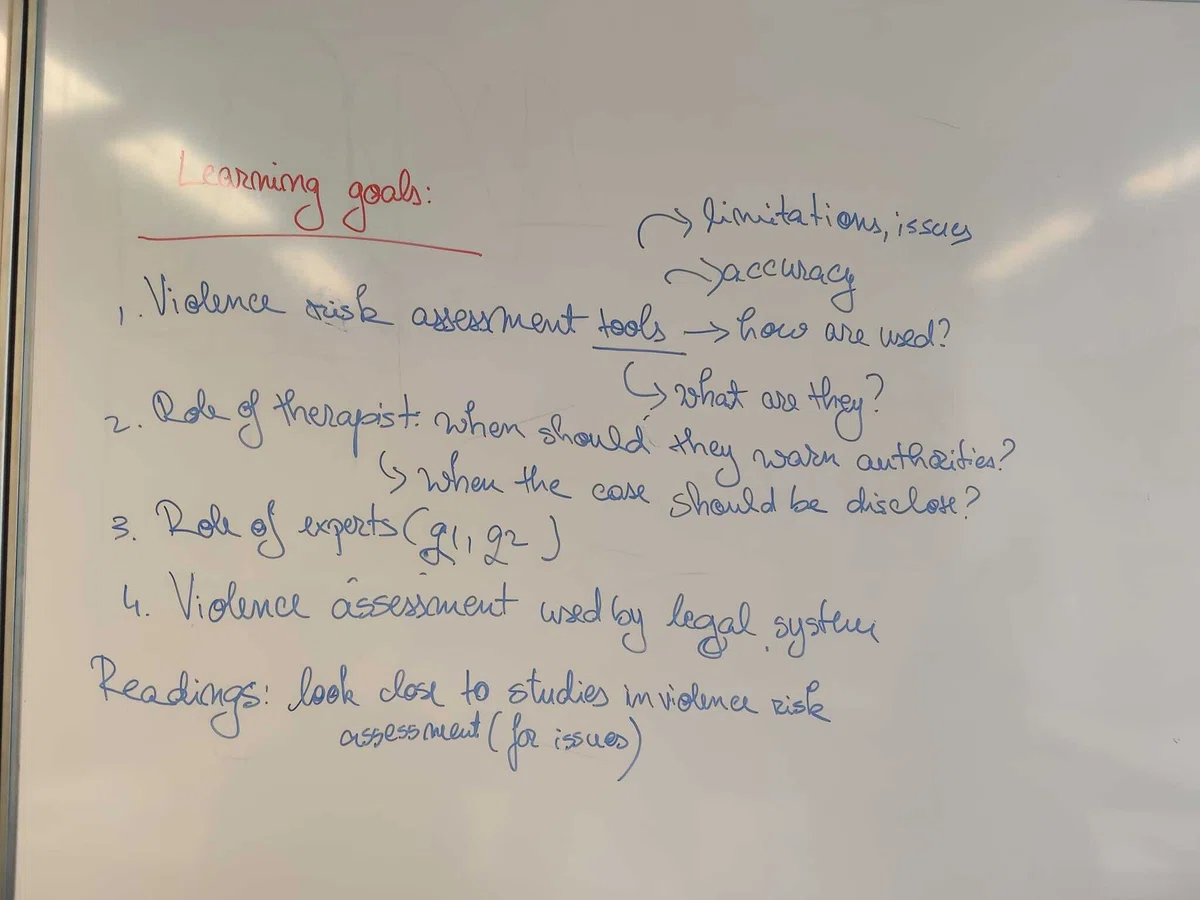 Learning goals:
→ limitations, issues
→ accuracy
1. Violence risk assessment tools → how are used?
↳ what are they?
2. Role of therapist: when should they warn authorities?
↳ when the case should be disclose?
3. Role of experts (g1, g2)
4. Violence assessment used by legal system
Readings: look close to studies in violence risk
assessment (for issues)